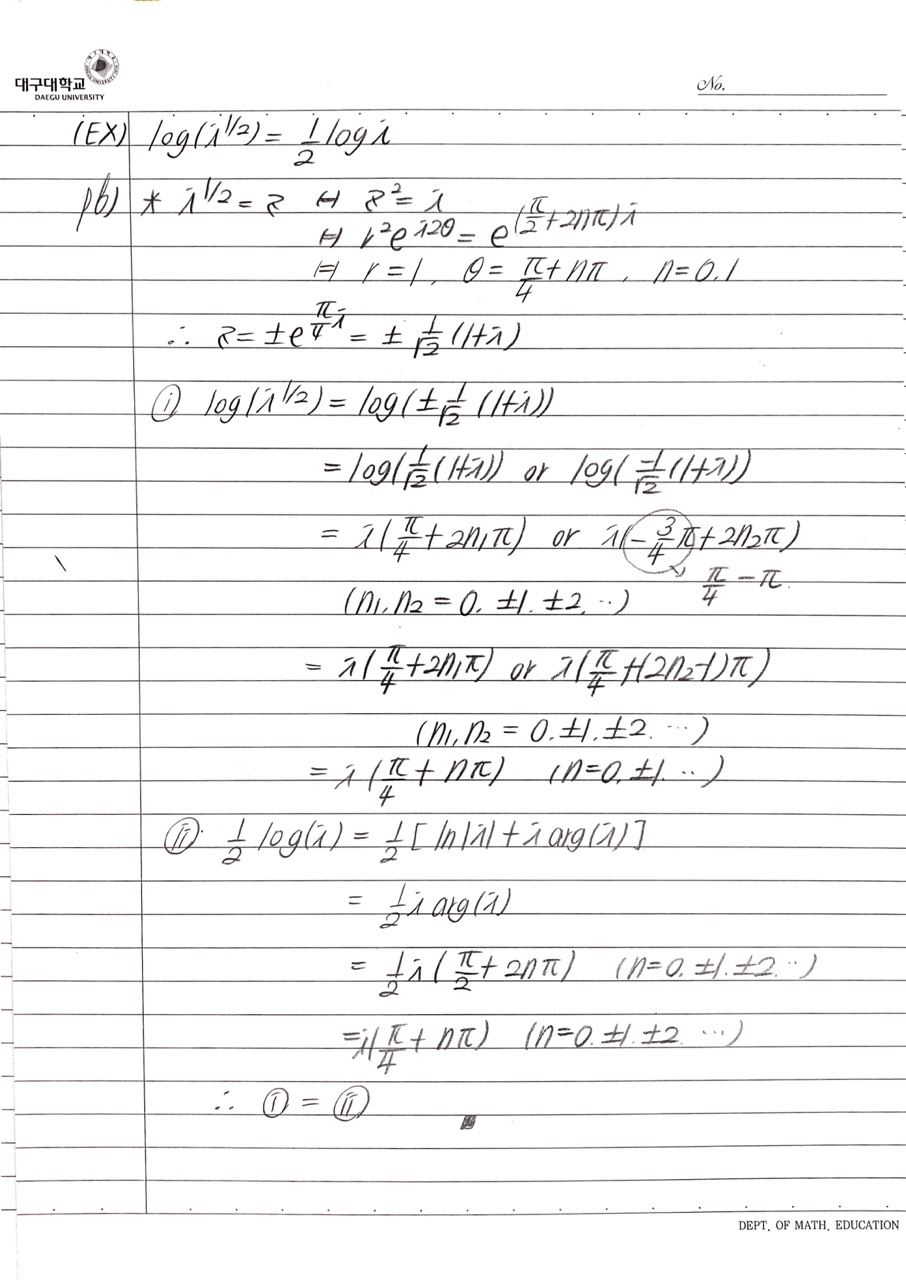 대구대학교
DAEGU UNIVERSITY
No.
(EX) log(i^1/2) = 1/2 log i
pb) * i^1/2 = z ⇔ z^2 = i
⇔ r^2 e^i2θ = e^(π/2+2nπ)i
⇔ r=1, θ = π/4 + nπ, n=0.1
∴ z = ±e^π/4 i = ± 1/√2 (1+i)
ⓘ log(i^1/2) = log(± 1/√2 (1+i))
= log(1/√2 (1+i)) or log(-1/√2 (1+i))
= i(π/4 + 2n₁π) or i(-3/4 π + 2n₂π)
↘ π/4 - π.
(n₁, n₂ = 0. ±1. ±2. ··)
= i(π/4 + 2n₁π) or i(π/4 + (2n₂-1)π)
(n₁, n₂ = 0. ±1. ±2. ···)
= i (π/4 + nπ) (n=0. ±1. ··)
ⅱ 1/2 log(i) = 1/2 [ ln|i| + i arg(i) ]
= 1/2 i arg(i)
= 1/2 i (π/2 + 2nπ) (n=0. ±1. ±2. ··)
= i(π/4 + nπ) (n=0. ±1. ±2. ···)
∴ ⓘ = ⅱ
DEPT. OF MATH. EDUCATION